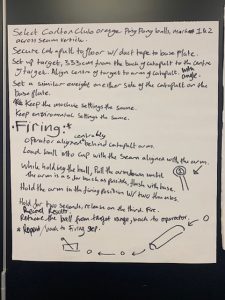 Select Carlton Club orange Ping Pong balls, mark 1 & 2
across seam vertical.
Secure catapult to floor w/ duct tape to base plate.
Set up target, 333cm from the back of catapult to the centre
of target. Align centre of target to arm of catapult.
Set a similar weight on either side of the catapult on the
base plate.
* Keep the machine settings the same.
Keep environmental settings the same.
Firing:
centrally
Operator aligned behind catapult arm.
Load ball into cup with the seam aligned with the arm.
While holding the ball, Pull the arm down until
the arm is as far back as possible, flush with base.
Hold the arm in the firing position w/ two fingers.
Hold for two seconds, release on the third. Fire.
Record Results.
Retrieve the ball from target range, back to operator.
* Repeat, back to Firing step.